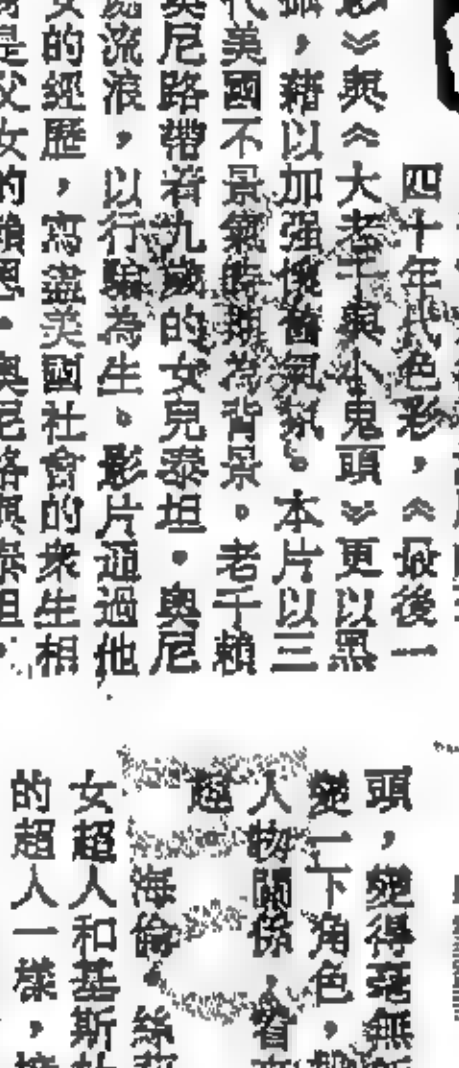 四十年代色彩，《最後一
影》與《大老千與小鬼頭》更以黑
，藉以加强懷舊氣氛。本片以三
代美國不景氣時期為背景。老千賴
奧尼路帶着九歲的女兒泰坦・奧尼
流浪，以行騙為生。影片通過他
女的經歷，寫盡美國社會的衆生相
頭，變得毫無
變一下角色，
人物關係，看
超
海倫・絲莉
女超人和基斯
的超人一樣，